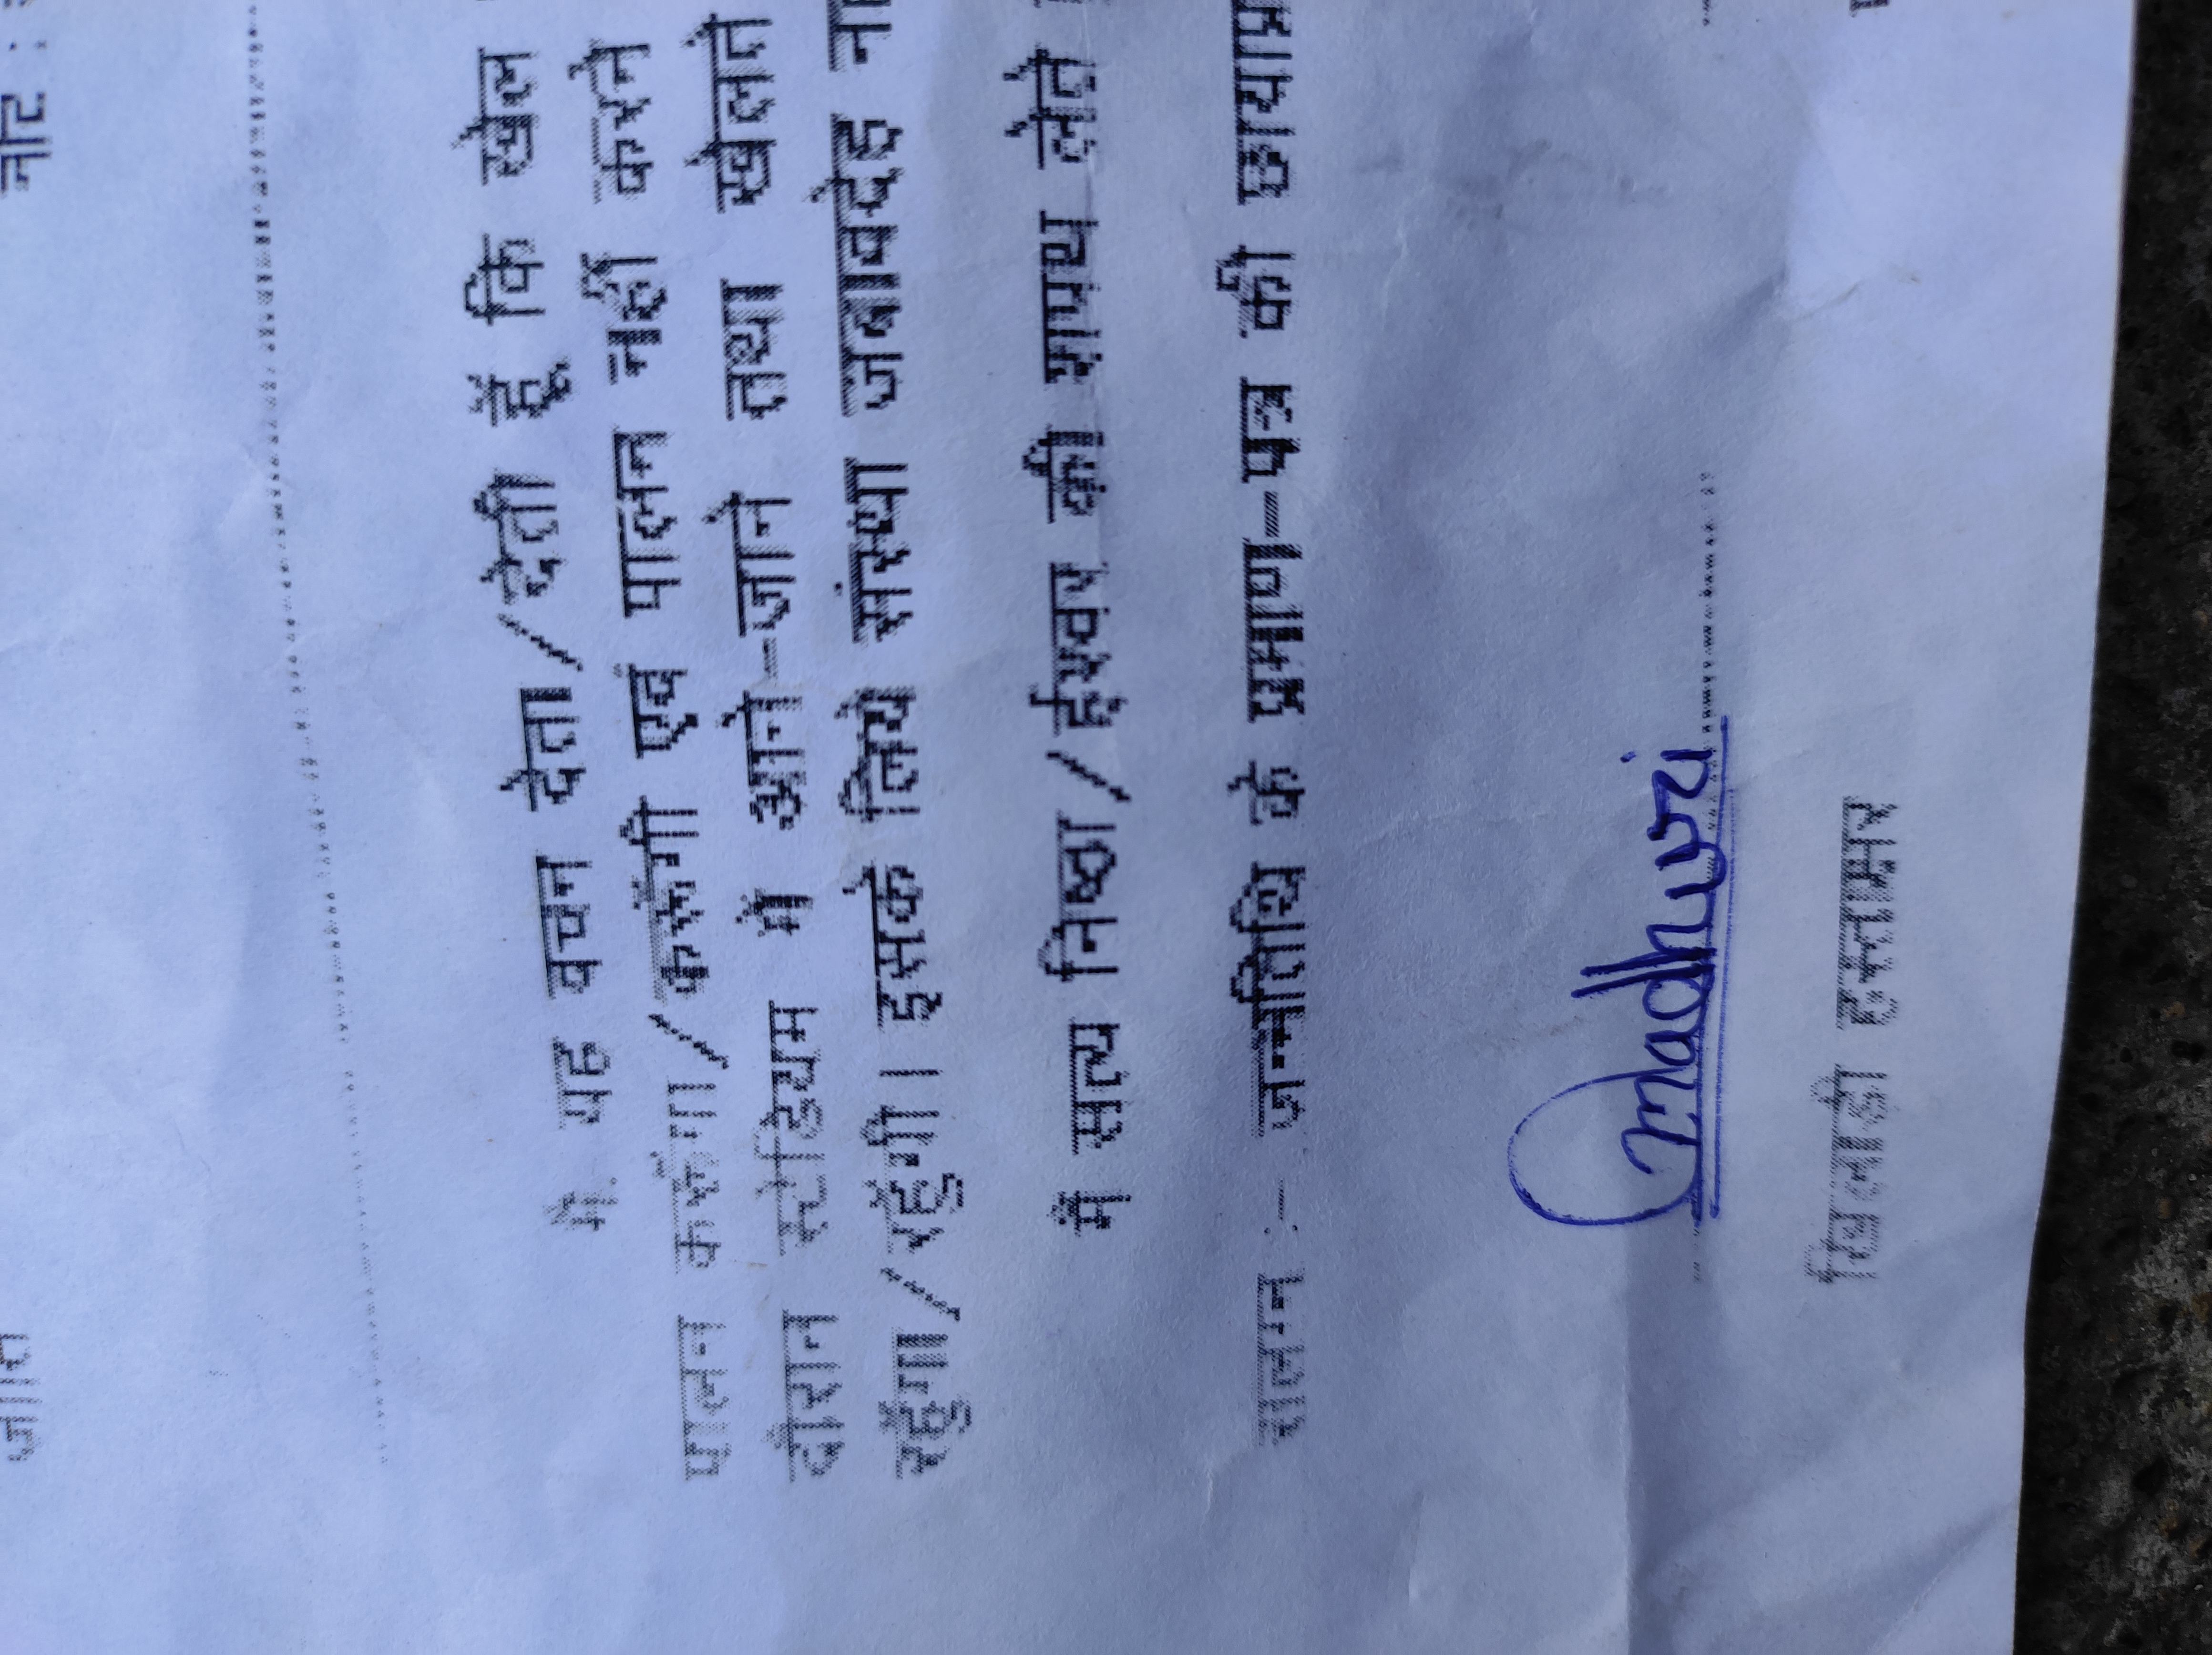 जाति
नोट :
मै. यह वचन देता/देती हूँ कि खेल
पालन करूंगा/करूँगी एवं पालन नहीं करने
दौरान स्टेडियम में आने-जाने तथा खेलते
रहूँगा/रहूँगी। इसके लिये संस्था जवाबदेह
मैं सत्य निष्ठा/ईश्वर की शपथ लेते
संलग्न :- जन्मतिथि के प्रमाण-पत्र की
madhuri
खिलाड़ी हस्ताक्षर